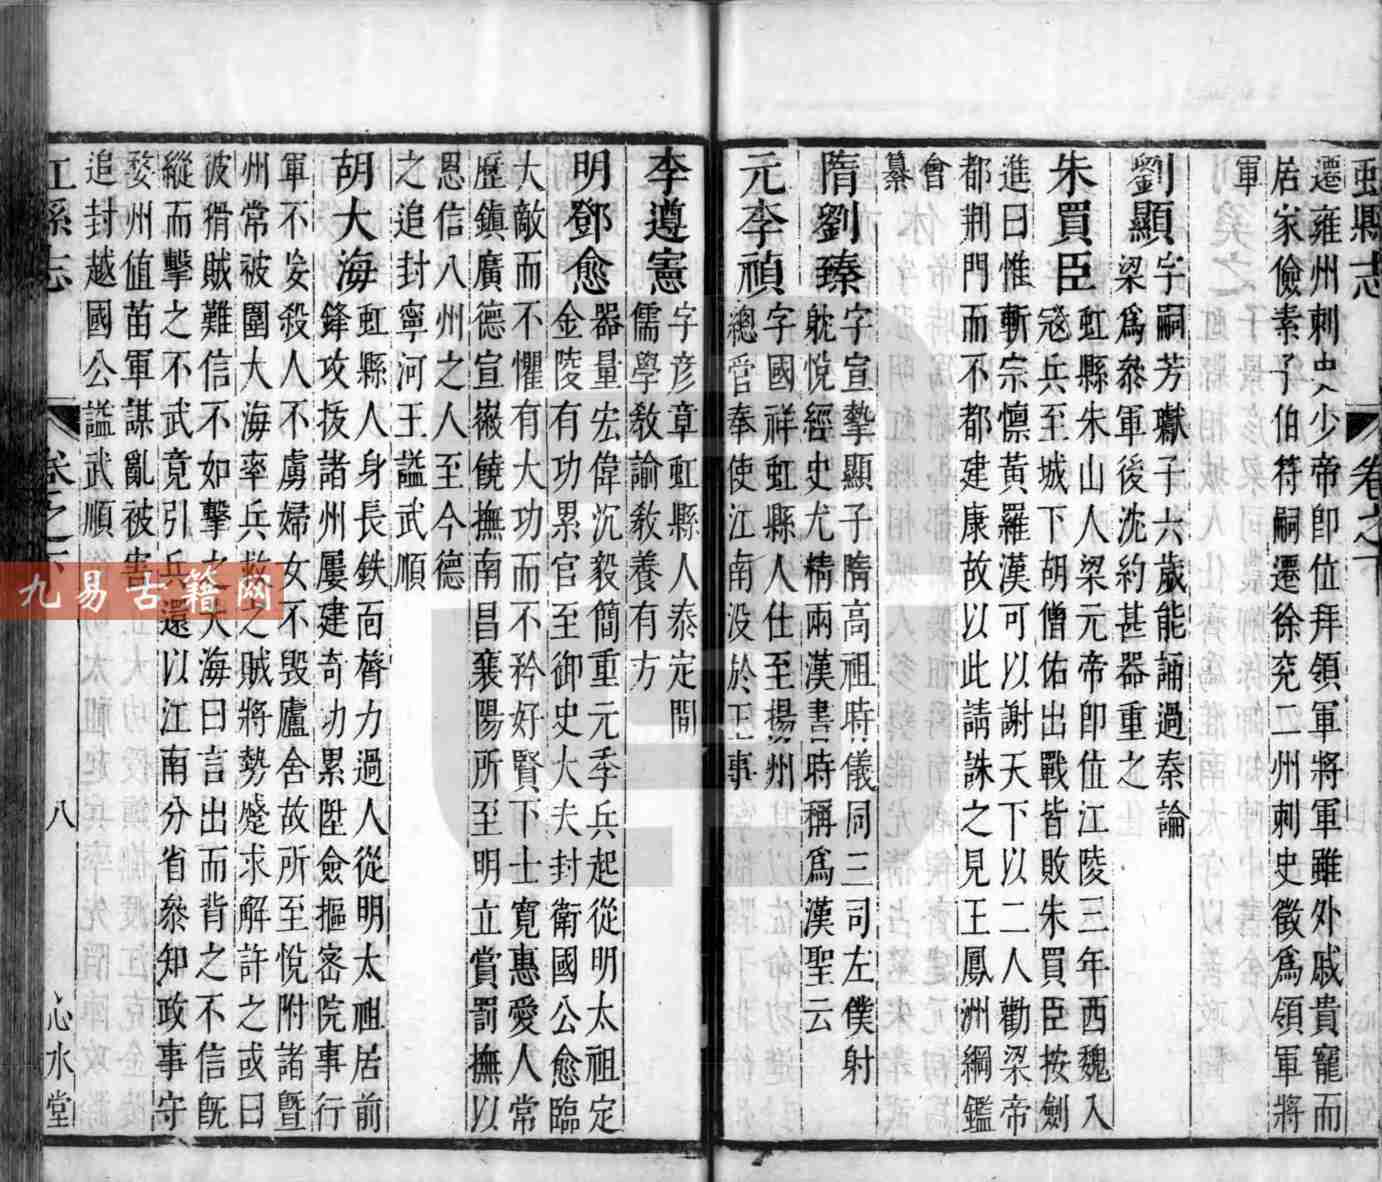 虹縣志
卷之下
遷雍州刺史少帝卽位拜領軍將軍雖外戚貴寵而
居家儉素子伯符嗣遷徐兗二州刺史徵爲領軍將
軍
劉顯字嗣芳瓛子六歲能誦過秦論
梁爲叅軍後沈約甚器重之
朱買臣虹縣朱山人梁元帝卽位江陵三年西魏入
寇兵至城下胡僧佑出戰皆敗朱買臣按劍
進曰惟斬宗懔黃羅漢可以謝天下以二人勸梁帝
都荆門而不都建康故以此請誅之見王鳳洲綱鑑
會
纂
隋劉臻字宣摯顯子隋高祖時儀同三司左僕射
躭悅經史尤精兩漢書時稱爲漢聖云
元李禎字國祥虹縣人仕至揚州
總管奉使江南没於王事
李遵憲字彦章虹縣人泰定間
儒學敎諭敎養有方
明鄧愈器量宏偉沉毅簡重元季兵起從明太祖定
金陵有功累官至御史大夫封衛國公愈臨
大敵而不懼有大功而不矜好賢下士寬惠愛人常
歷鎮廣德宣嶶饒撫南昌襄陽所至明立賞罰撫以
恩信八州之人至今德
之追封寧河王謚武順
胡大海虹縣人身長鉄面膂力過人從明太祖居前
鋒攻拔諸州屢建奇功累陞僉摳密院事行
軍不妄殺人不虜婦女不毀廬舍故所至悅附諸暨
州常被圍大海率兵救之賊將勢蹙求解許之或曰
彼猾賊難信不如擊之大海曰言出而背之不信旣
縱而擊之不武竟引兵還以江南分省叅知政事守
婺州值苗軍謀亂被害
追封越國公謚武順
虹縣志
卷之下
八
心水堂
九易古籍网